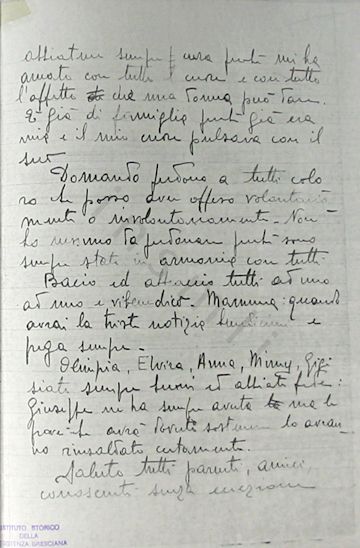 abbiatene sempre cura perché mi ha
amato con tutto il cuore e con tutto
l'affetto che una donna può dare.
È già di famiglia perché già era
mia e il mio cuore pulsava con il
suo.
Domando perdono a tutti colo
ro che posso aver offeso volontaria
mente o involontariamente. Non
ho nessuno da perdonare perché sono
sempre stato in armonia con tutti.
Bacio ed abbraccio tutti ad uno
ad uno e vi benedico. Mamma: quando
avrai la triste notizia benedicimi e
prega sempre.
Olimpia, Elvira, Anna, Mimy, Gigi
siate sempre buoni ed abbiate fede:
Giuseppe ne ha sempre avuta ma le
prove che avrà dovuto sostenere lo avran
no rinsaldato certamente.
Saluto tutti parenti, amici,
conoscenti senza eccezione
ISTITUTO STORICO
DELLA
RESISTENZA BRESCIANA